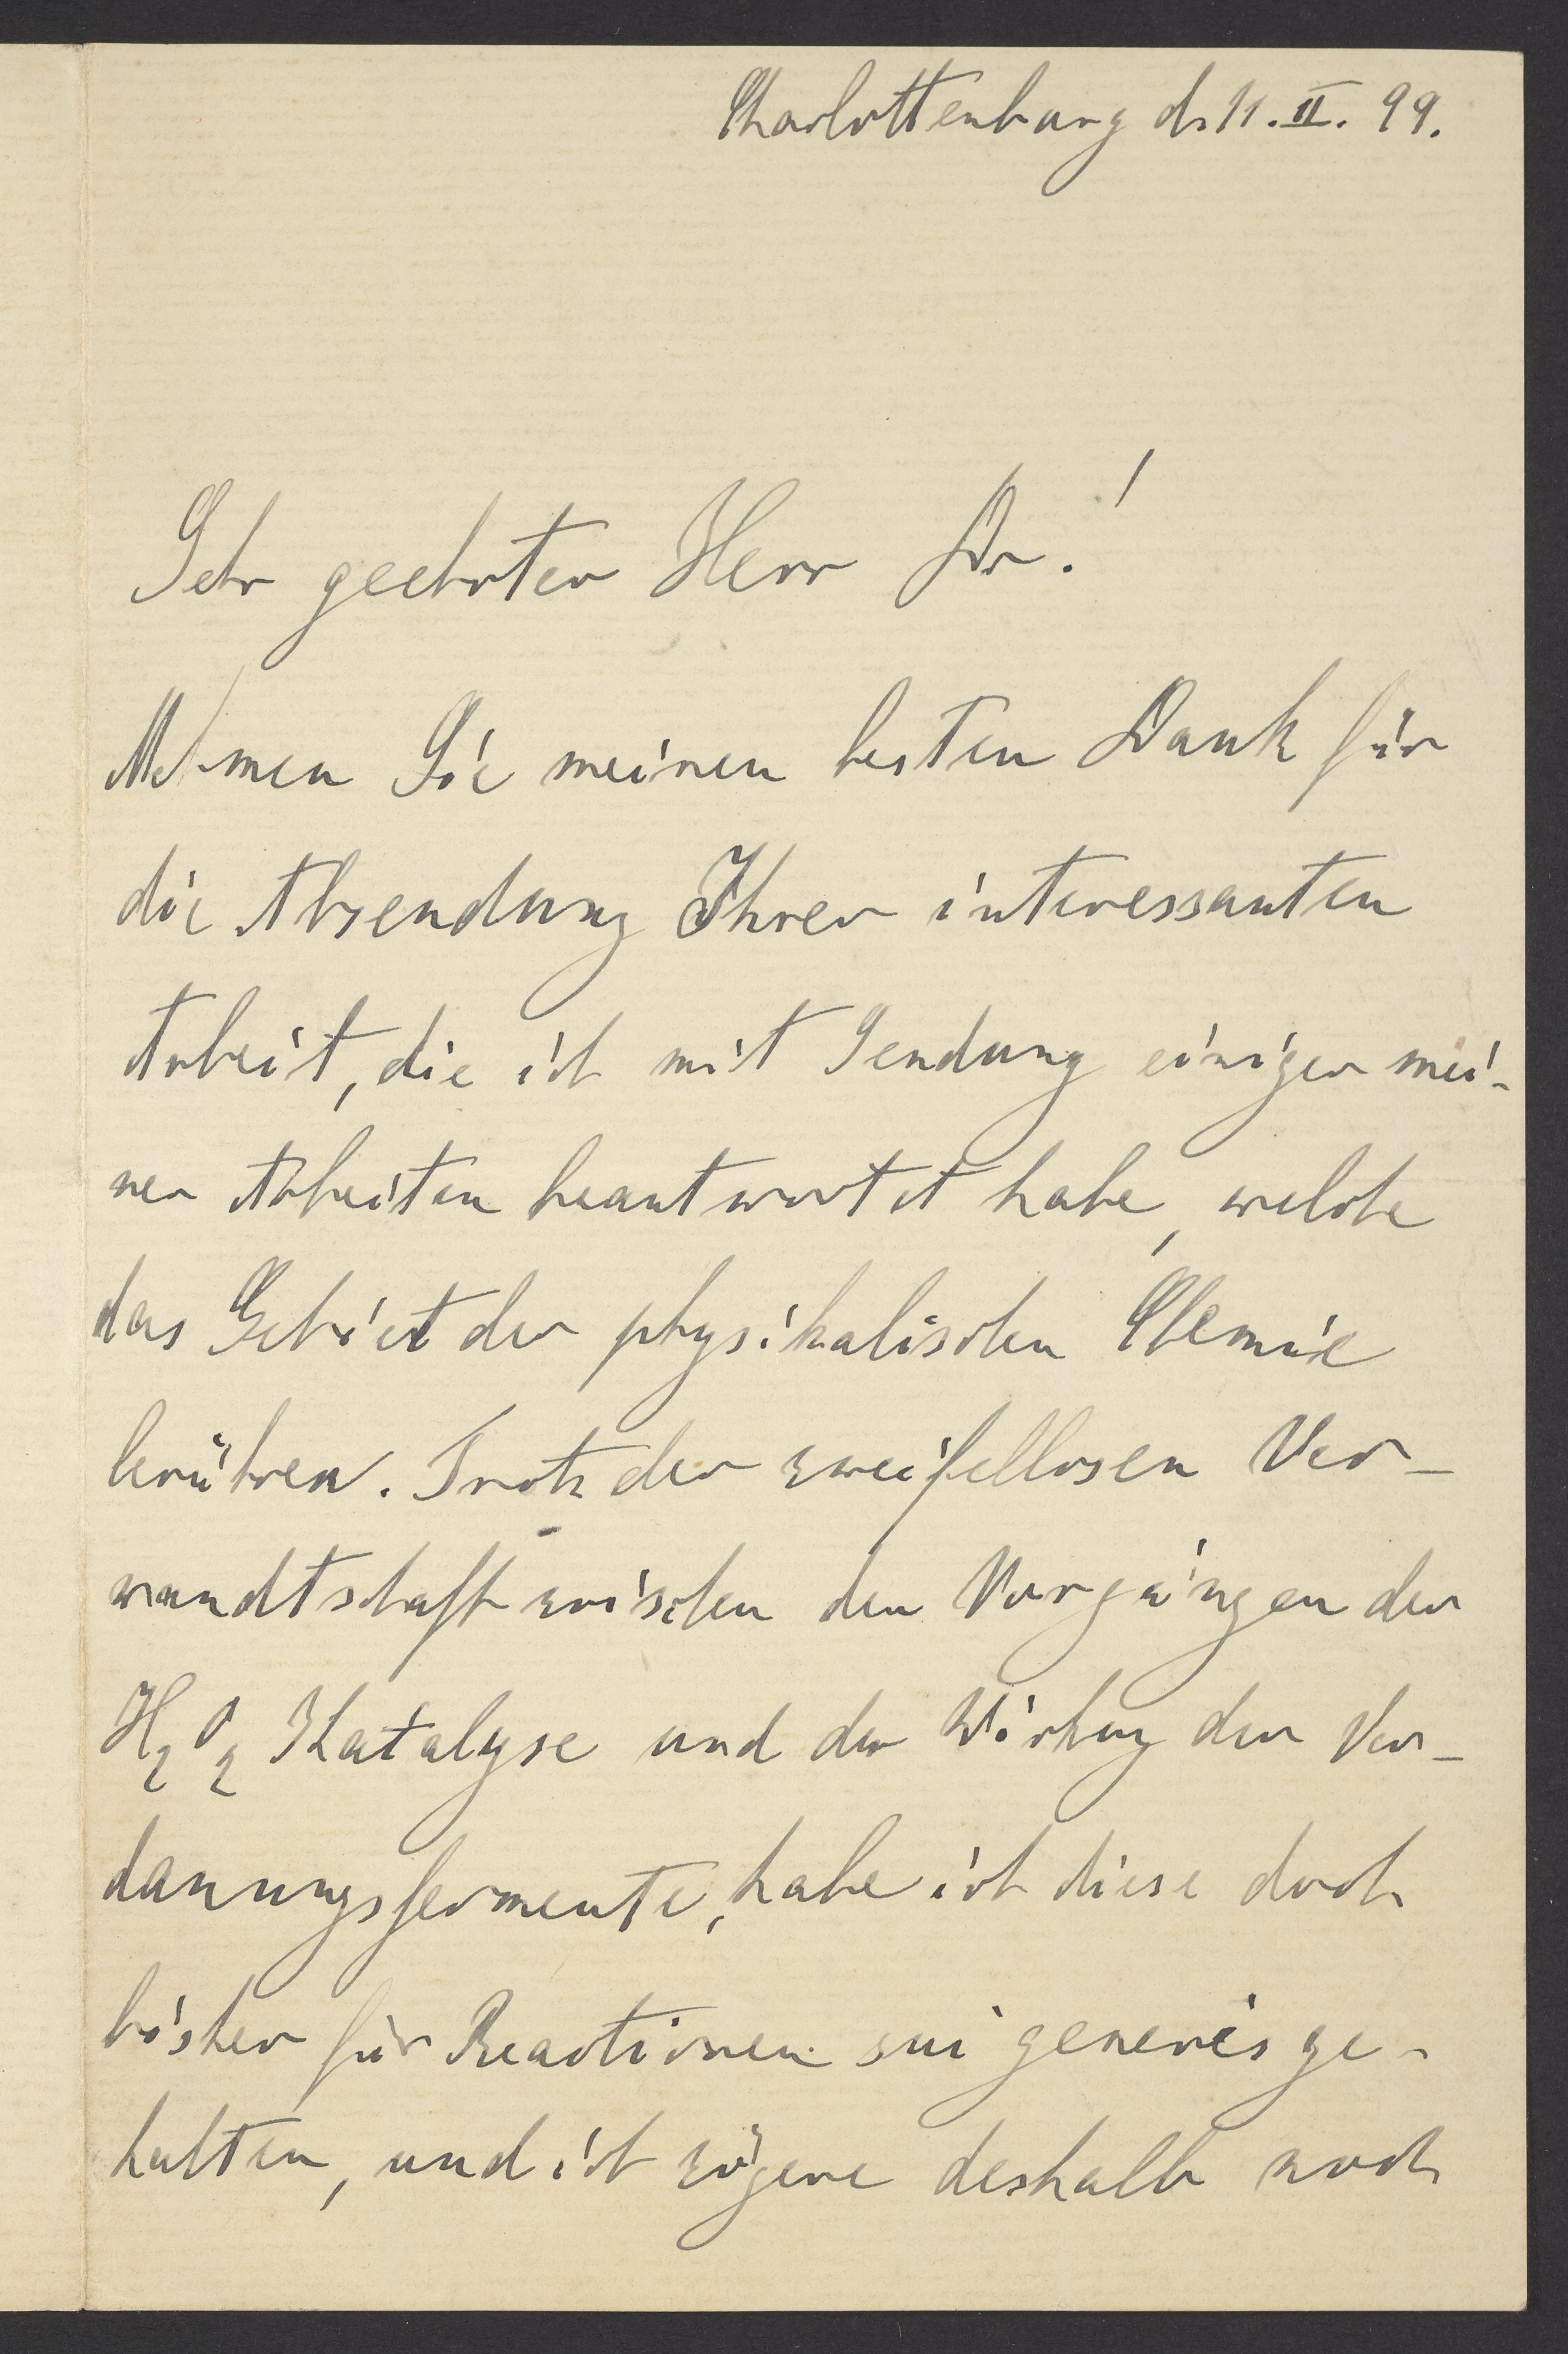 Charlottenburg d. 11. II. 99.
Sehr geehrter Herr Dr.!
Nehmen Sie meinen besten Dank für
die Absendung Ihrer interessanten
Arbeit, die ich mit Sendung einiger mei-
ner Arbeiten beantwortet habe, welche
das Gebiet der physikalischen Chemie
berühren. Trotz der zweifellosen Ver-
wandtschaft zwischen den Vorgängen der
H2O2 Katalyse und der Wirkung der Ver-
dauungsfermente, habe ich diese doch
bisher für Reactionen sui generis ge-
halten, und ich zögere deshalb noch